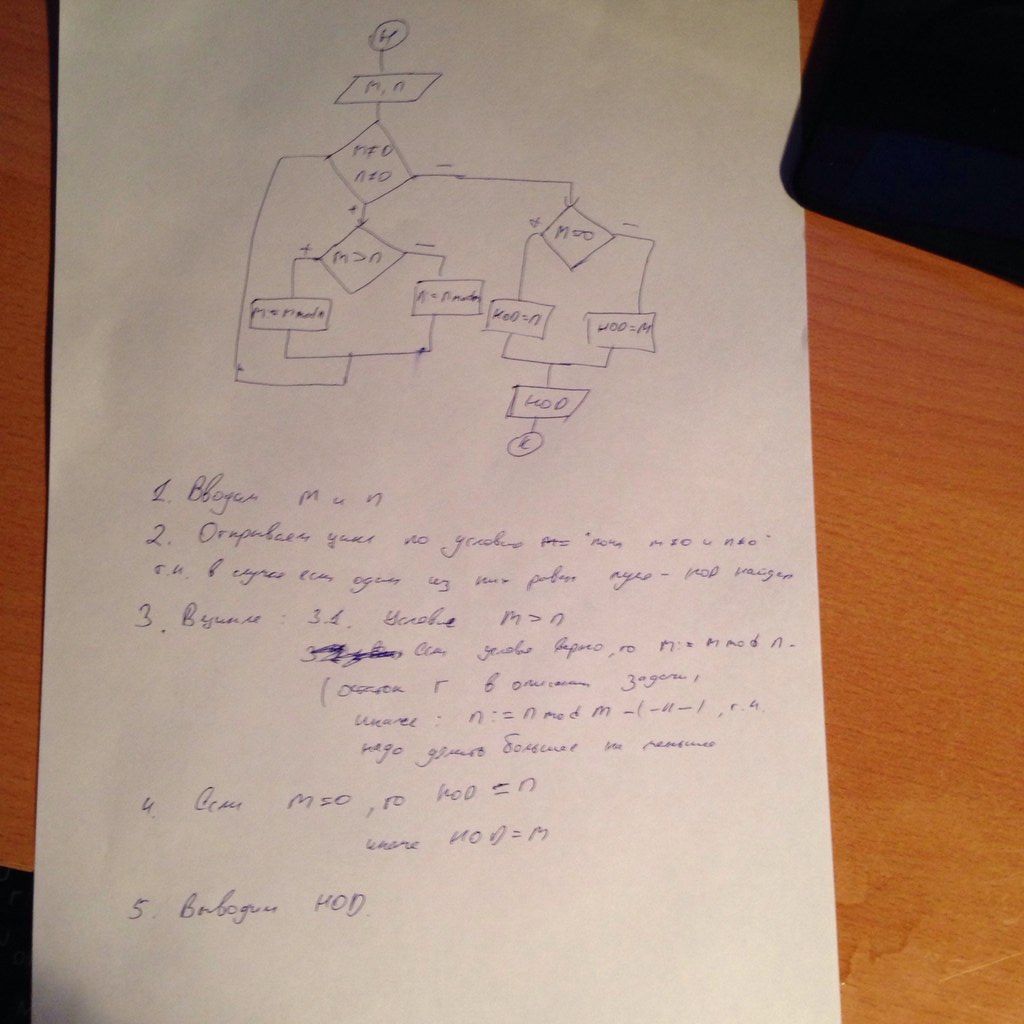 Н
M, n
M≠0
n≠0
+
−
M>n
+
−
M=0
+
−
M:=M mod n
n:=n mod m
НОД=n
НОД=M
НОД
К
1. Вводим M и n
2. Открываем цикл по условию "пока m≠0 и n≠0"
т.к. в случае если один из них равен нулю - НОД найден
3. В цикле: 3.1. Условие M>n
Если условие верно, то M:=M mod n.
(остаток r в описании задачи,
иначе: n:=n mod M -(-н-), т.к.
надо делить большее на меньшее
4. Если M=0, то НОД=n
иначе НОД=M
5. Выводим НОД.